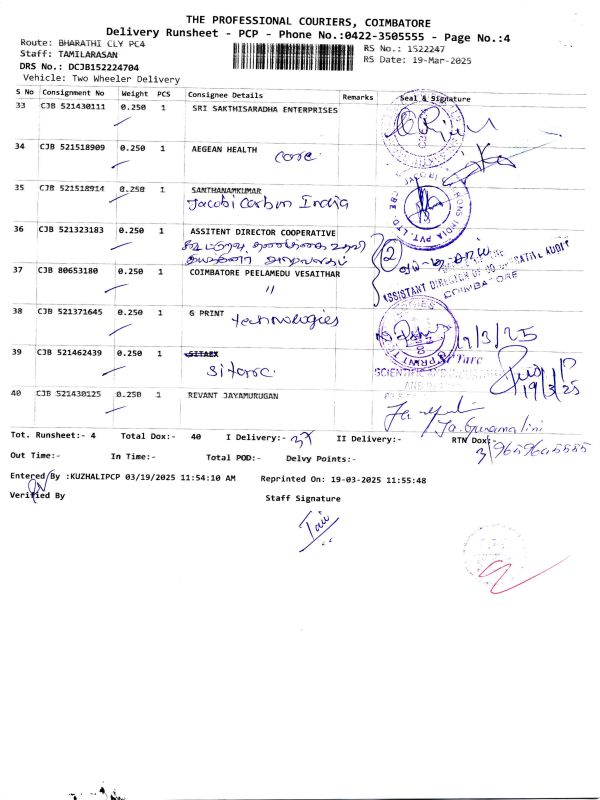 THE PROFESSIONAL COURIERS, COIMBATORE
Delivery Runsheet - PCP - Phone No.:0422-3505555 - Page No.:4
Route: BHARATHI CLY PC4
RS No.: 1522247
Staff: TAMILARASAN
RS Date: 19-Mar-2025
DRS No.: DCJB152224704
Vehicle: Two Wheeler Delivery
S No Consignment No Weight PCS Consignee Details Remarks Seal & Signature
33 CJB 521430111 0.250 1 SRI SAKTHISARADHA ENTERPRISES
34 CJB 521518909 0.250 1 AEGEAN HEALTH
care
35 CJB 521518914 0.250 1 SANTHANAMKUMAR
Jacobi Carbon India
36 CJB 521323183 0.250 1 ASSITENT DIRECTOR COOPERATIVE
2
ASSISTANT DIRECTOR OF CO OPERATIVE AUDIT
COIMBATORE
37 CJB 80653180 0.250 1 COIMBATORE PEELAMEDU VESAITHAR
"
38 CJB 521371645 0.250 1 G PRINT
technologies
19/3/25
39 CJB 521462439 0.250 1 SITAEX
Sitarc
SCIENTIFIC AND
19/3/25
40 CJB 521430125 0.250 1 REVANT JAYAMURUGAN
Ja. Gunamalini
9659645585
Tot. Runsheet:- 4 Total Dox:- 40 I Delivery:- 37 II Delivery:- RTN Dox:- 3
Out Time:- In Time:- Total POD:- Delvy Points:-
Entered By :KUZHALIPCP 03/19/2025 11:54:10 AM Reprinted On: 19-03-2025 11:55:48
Verified By
Staff Signature